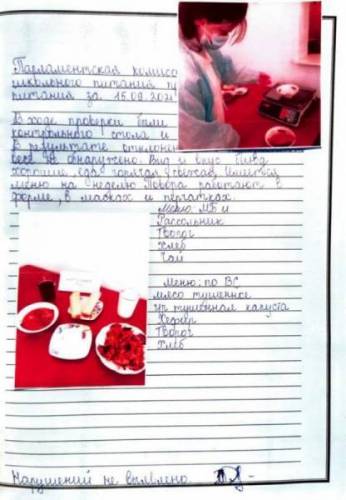 Парламентская комисс
школьного питания п
питания за 15.09.202
В ходе проверки были
контрольного стола и
В результате отклонен
веса не обнаружено. Вид и вкус блюд
хорошие, еда горячая, свежая. Имеется
меню на неделю. Повара работают в
форме, в масках и перчатках.
Меню: МБ и
Рассольник
Творог
Хлеб
Чай
Меню: по ВС
мясо тушенное
тушенная капуста
Кефир
Творог
Хлеб
Нарушений не выявлено.